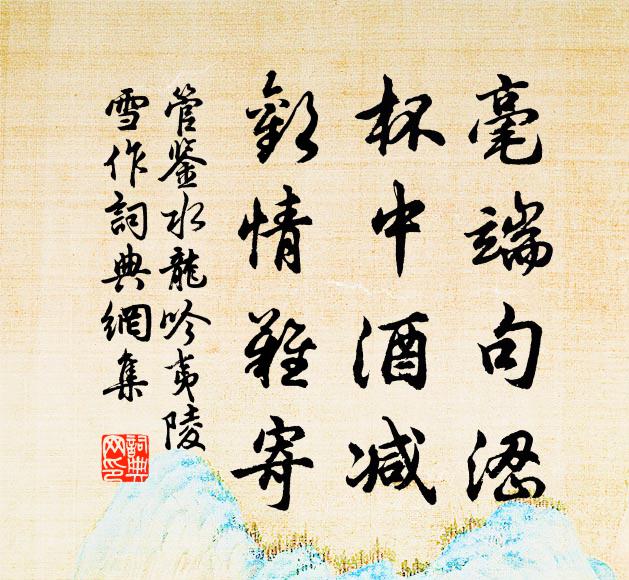 毫端句澀
杯中酒減
歡情難寄
管鉴水龍吟夷陵
雪作詞典網集
詞典網印